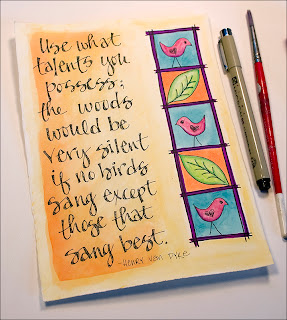 Use what
talents you
possess;
the woods
would be
very silent
if no birds
sang except
those that
sang best.
-HENRY VAN DYKE